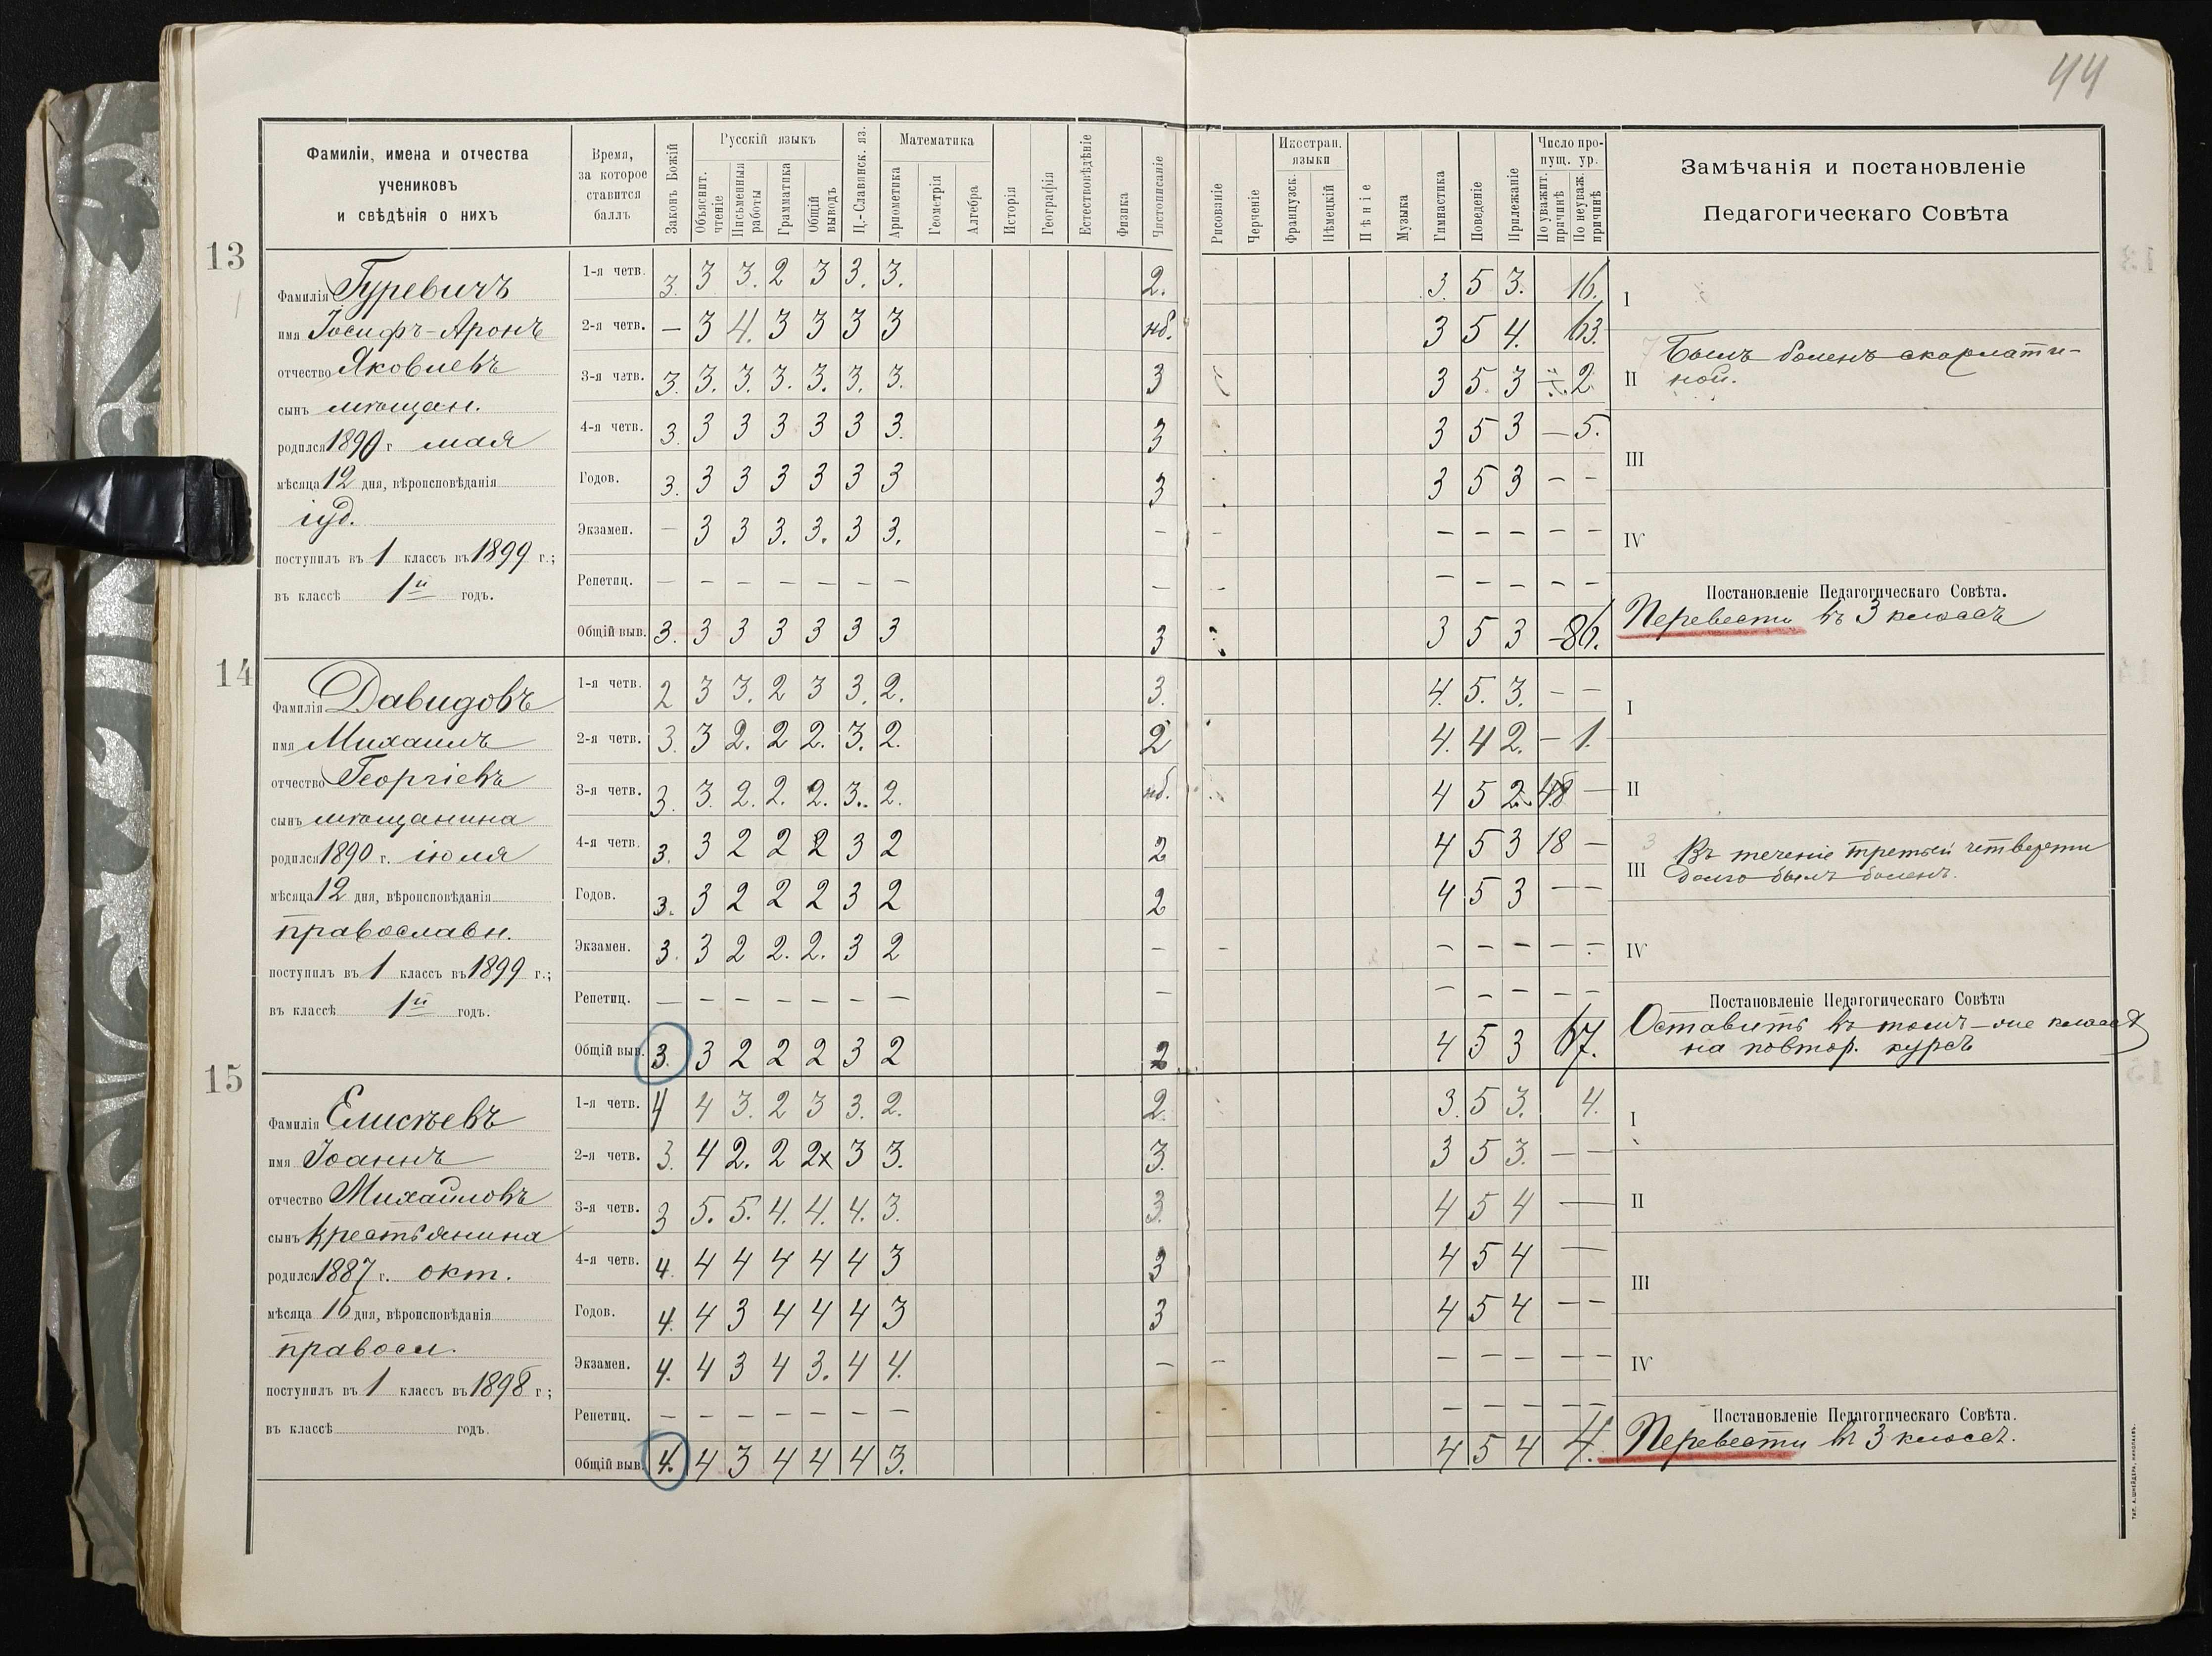 44
Фамиліи, имена и отчества
учениковъ
и свѣдѣнія о нихъ
Время,
за которое
ставится
баллъ
Законъ Божій
Русскій языкъ
Объяснит.
чтеніе
Письменныя
работы
Грамматика
Общій
выводъ
Ц.-Славянск. яз.
Математика
Арифметика
Геометрія
Алгебра
Исторія
Географія
Естествовѣдѣніе
Физика
Чистописаніе
Рисованіе
Черченіе
Иностран.
языки
Французск.
Нѣмецкій
Пѣніе
Музыка
Гимнастика
Поведеніе
Прилежаніе
Число про-
пущ. ур.
По уважит.
причинѣ
По неуваж.
причинѣ
Замѣчанія и постановленіе
Педагогическаго Совѣта
13
Фамилія Гуревичъ
имя Іосифъ-Аронъ
отчество Яковлевъ
сынъ мѣщан.
родился 1890 г. мая
мѣсяца 12 дня, вѣроисповѣданія
іуд.
поступилъ въ 1 классъ въ 1899 г.;
въ классѣ 1й годъ.
1-я четв. 3. 3 3. 2 3 3. 3. 2. 3. 5 3. 16.
2-я четв. — 3 4. 3 3 3 3 нб. 3 5 4. 63.
3-я четв. 3. 3. 3. 3. 3. 3. 3. 3 3 5. 3 2.
4-я четв. 3. 3 3 3 3 3 3. 3 3 5 3 — 5.
Годов. 3. 3 3 3 3 3 3 3 3 5 3 — —
Экзамен. — 3 3 3. 3. 3 3. — — — — — — —
Репетиц. — — — — — — — — — — — — — —
Общій выв. 3. 3 3 3 3 3 3 3 3 5 3 — 86.
I
II
Былъ боленъ скарлати-
ной.
III
IV
Постановленіе Педагогическаго Совѣта.
Перевести въ 3 классъ
14
Фамилія Давидовъ
имя Михаилъ
отчество Георгіевъ
сынъ мѣщанина
родился 1890 г. іюля
мѣсяца 12 дня, вѣроисповѣданія
православн.
поступилъ въ 1 классъ въ 1899 г.;
въ классѣ 1й годъ.
1-я четв. 2 3 3. 2 3 3. 2. 3. 4. 5. 3. — —
2-я четв. 3. 3 2. 2 2. 3. 2. 2 4. 4 2. — 1.
3-я четв. 3. 3. 2. 2. 2. 3. 2. нб. 4 5 2. 48 —
4-я четв. 3. 3 2 2 2 3 2 2 4 5 3 18 —
Годов. 3. 3 2 2 2 3 2 2 4 5 3 — —
Экзамен. 3. 3 2 2. 2. 3 2 — — — — — — —
Репетиц. — — — — — — — — — — — — —
Общій выв. 3. 3 2 2 2 3 2 2 4 5 3 67.
I
II
III
Въ теченіе третьей четверти
долго былъ боленъ.
IV
Постановленіе Педагогическаго Совѣта
Оставить въ томъ-же классѣ
на повтор. курсъ
15
Фамилія Елисѣевъ
имя Іоаннъ
отчество Михайловъ
сынъ крестьянина
родился 1887 г. окт.
мѣсяца 16 дня, вѣроисповѣданія
правосл.
поступилъ въ 1 классъ въ 1898 г.;
въ классѣ годъ.
1-я четв. 4 4 3. 2 3 3. 2. 2. 3. 5 3. 4.
2-я четв. 3. 4 2. 2 2x 3 3. 3. 3 5 3. — —
3-я четв. 3 5. 5. 4. 4. 4. 3. 3. 4 5 4 —
4-я четв. 4. 4 4 4 4 4 3 3 4 5 4 —
Годов. 4. 4 3 4 4 4 3 3 4 5 4 — —
Экзамен. 4. 4 3 4 3. 4 4. — — — — — — —
Репетиц. — — — — — — — — — — — — —
Общій выв. 4. 4 3 4 4 4 3. 4 5 4 4.
I
II
III
IV
Постановленіе Педагогическаго Совѣта.
Перевести въ 3 классъ.
ТИП. А. ШНЕЙДЕРЪ, НИКОЛАЕВЪ.